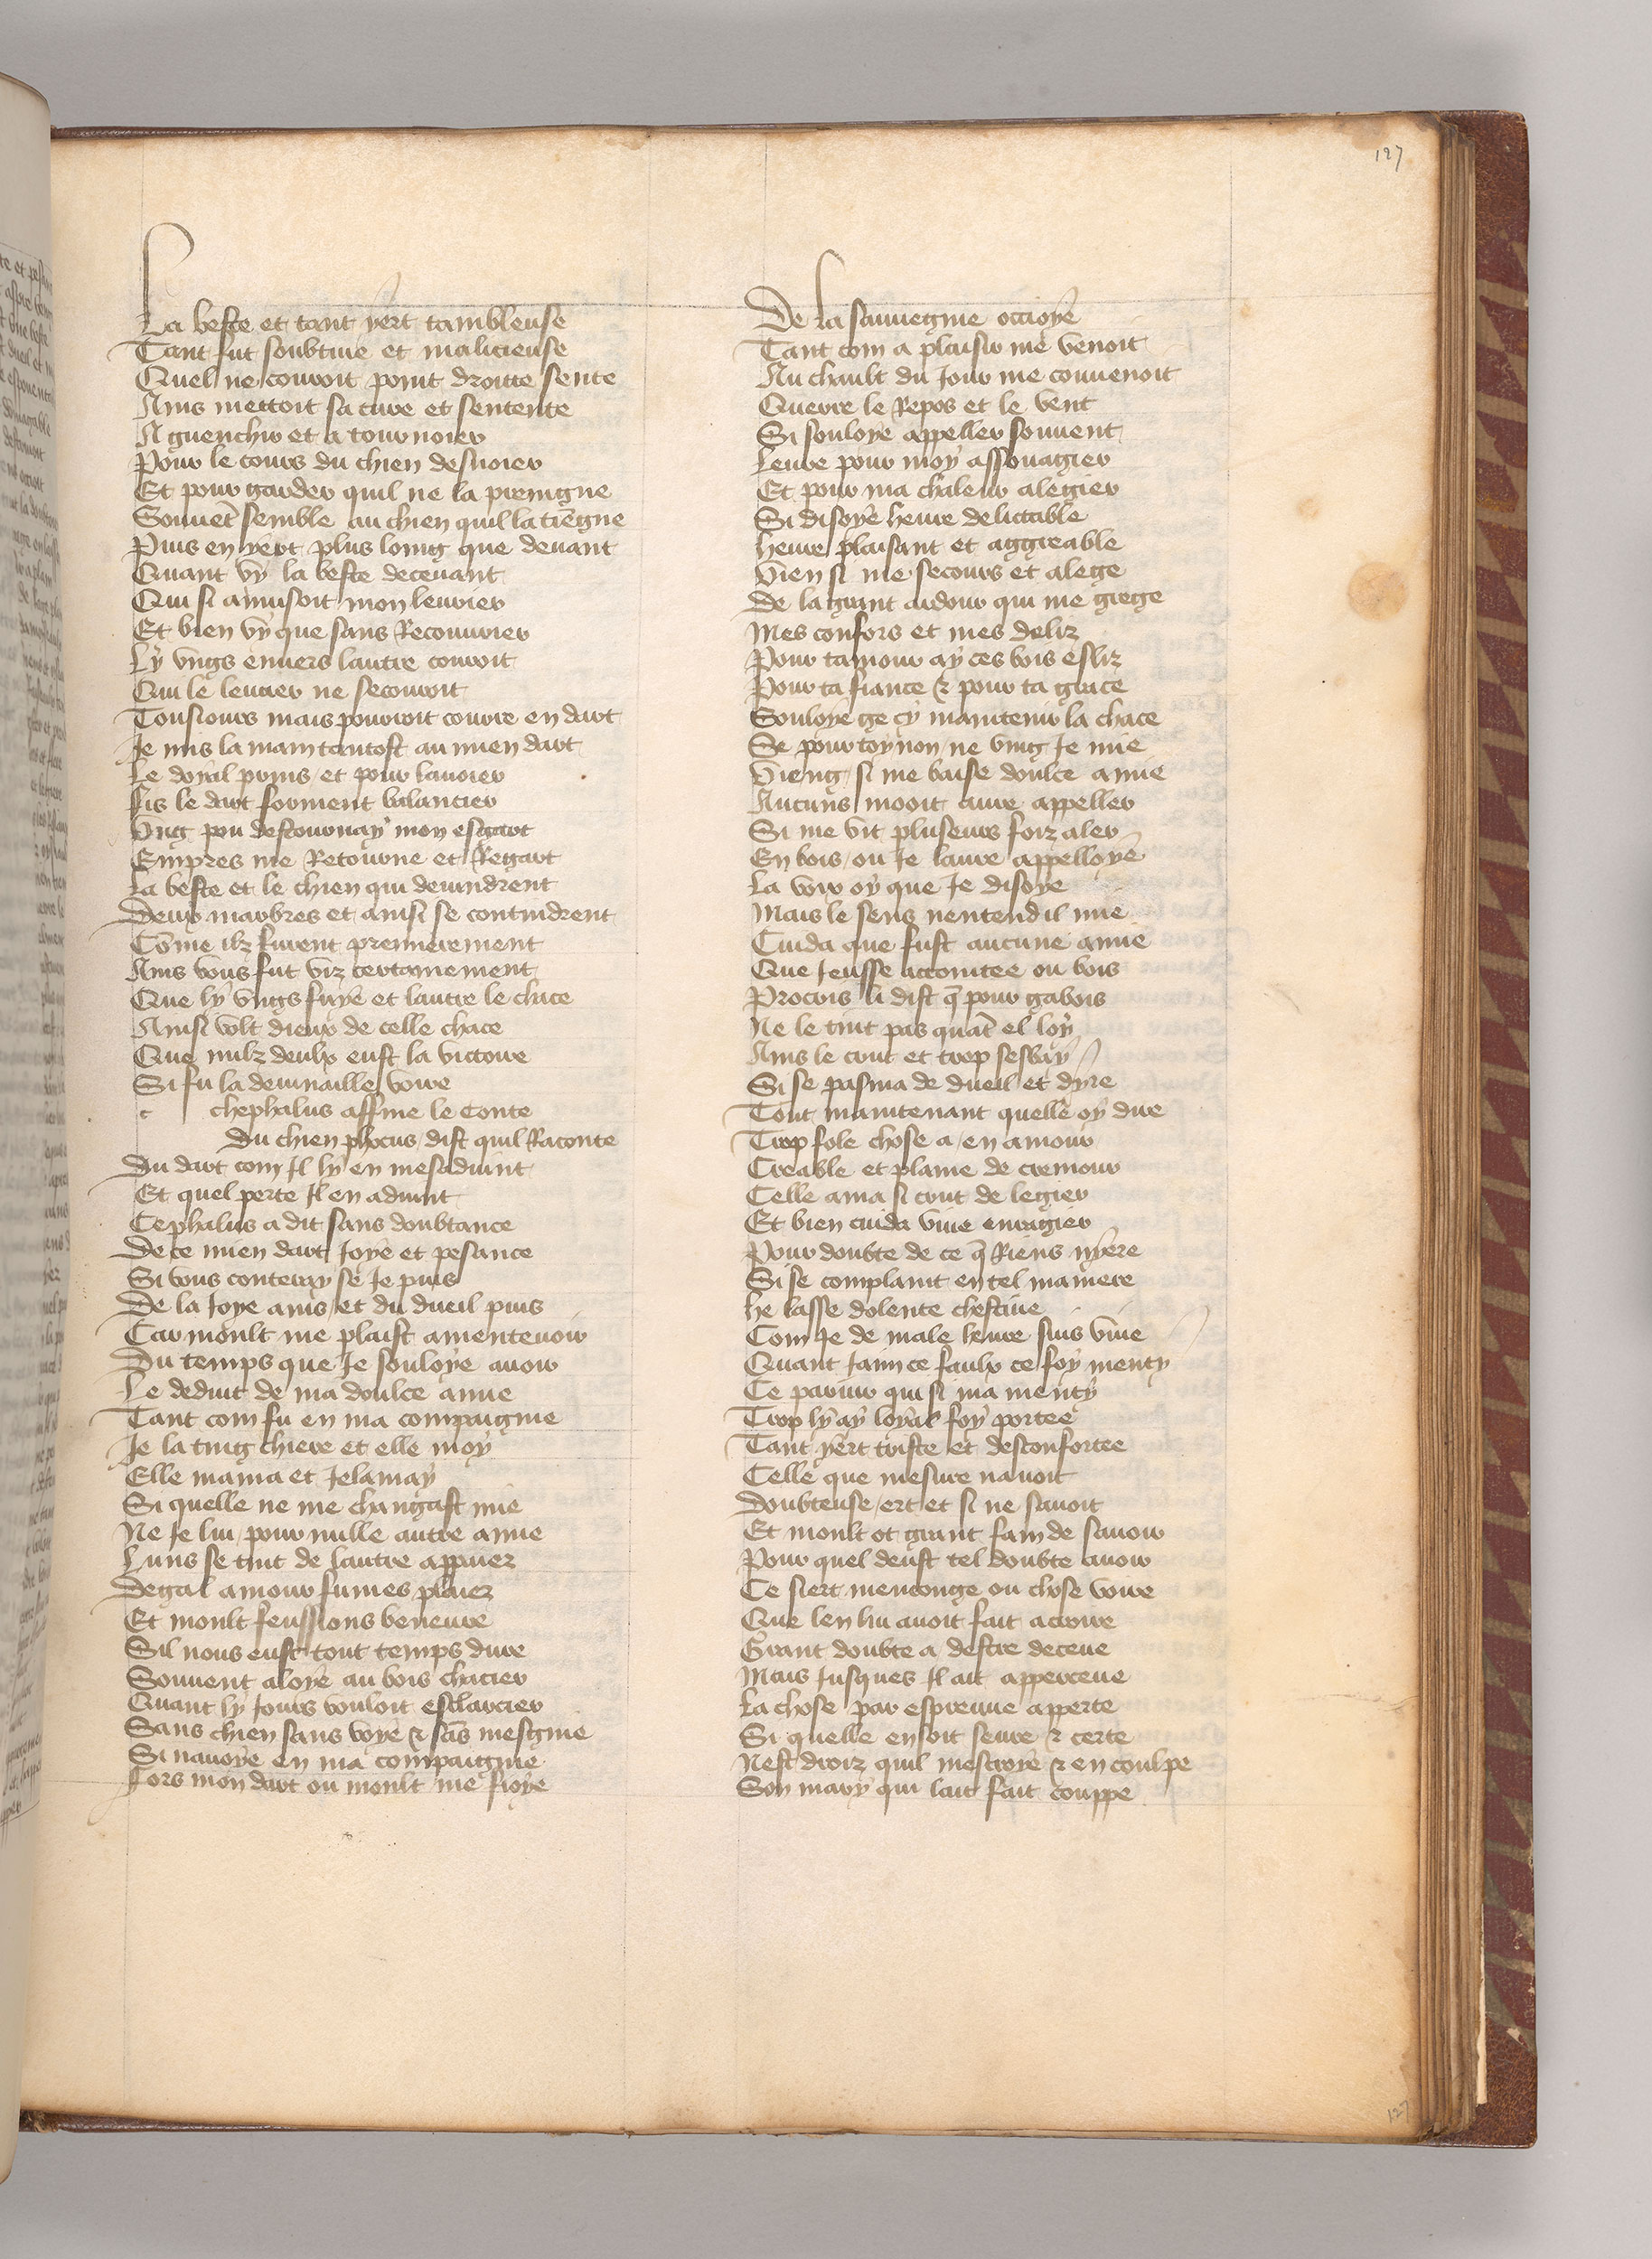 127
La beste et tant yert tambleuse
Tant fut soubtiue et malicieuse
Quel ne couroit point droitte sente
Ains mettoit sa cure et sentente
A guenchir et a tournoier
Pour le cours du chien desuoier
Et pour garder quil ne la preingne
Souuet semble au chien quil la tiegne
Puis en yert plus loing que deuant
Quant vy la beste deceuant
Qui si amusoit mon leurier
Et bien vy que sans Recouurier
Ly vngs enuers lautre couroit
Qui le leurier ne secouroit
Tousiours mais pourroit courre en dart
Je mis la main tantost au mien dart
Le doyal prins et pour lancier
fis le dart forment balancier
Vng pou destournay mon esgart
Empres me Retourne et Regart
La beste et le chien qui deuindrent
Deux marbres et ainsi se contindrent
Come ilz furent premierement
Ains vous fut viz certainement
Que ly vngs fuye et lautre le chace
Ainsi volt dieux de celle chace
Que nulz deulx eust la victoire
Si fu la deuinaille voire
c chephalus affine le Conte
Du chien phocus dist quil Raconte
Du dart com Il ly en mesaduint
Et quel perte Il en aduint
Cephalus a dit sans doubtance
De ce mien dart Joye et pesance
Si vous conteray se Je puis
De la Joye ains et du dueil puis
Car moult me plaist amenteuoir
Du temps que Je souloye auoir
Le deduit de ma doulce amie
Tant com fu en ma compaignie
Je la ting chiere et elle moy
Elle mama et Jelamay
Si quelle ne me changast mie
Ne Je lui pour nulle autre amie
Luns se tint de lautre appaiez
Degal amour fumes plaiez
Et moult feussions beneure
Sil nous eust tout temps dure
Souuent aloye au bois chacier
Quant ly Jours vouloit esclarcier
Sans chien sans voye & sas mesgnie
Si nauoye en ma compaignie
fors mon dart ou moult me fioye
De la sauuegine occioye
Tant com a plaisir me venoit
Au chault du Jour me conuenoit
Querre le Repos et le vent
Si souloye appeller souuent
Leure pour moy assouagier
Et pour ma chaleur alegier
Si disoye heure delictable
heure plaisant et aggreable
Vien si me secours et alege
De la grant ardour qui me griege
Mes confors et mes deliz
Pour tamour ay ces bois esliz
Pour ta fiance & pour ta grace
Souloye ge cy maintenir la chace
Se pour toy non ne ving Je mie
Vieng si me baise doulce amie
Aucuns mooit aure appeller
Si me vit pluseurs foiz aler
En bois ou Je laure appelloye
La voix oy que Je disoye
Mais le sens nentendil mie
Cuida que fust aucune amie
Que Jeusse accointee ou bois
Procris li dist q pour gabois
Ne le tint pas quat el loy
Ains le crut et trop sesbay
Si se pasma de dueil et dyre
Tout maintenant quelle oy dire
Trop fole chose a en amour
Creable et plaine de cremour
Celle ama si crut de legier
Et bien cuida viue enragier
Pour doubte de ce q Riens nyere
Si se complaint en tel maniere
he lasse dolente chestiue
Com Je de male heure suis viue
Quant Jaim ce faulx ce foy menty
Ce pariur qui si ma menty
Trop ly ay loyal foy portee
Tant yert triste et desconfortee
Celle que mesure nauoit
doubteuse ert et si ne sauoit
Et moult ot grant fain de sauoir
Pour quel deust tel doubte auoir
Ce siert mencونge ou chose voire
Que len lui auoit fait accroire
Grant doubte a destre deceue
Mais Jusques Il ait apperceue
La chose par espreuue apperte
Si quelle en soit seure & certe
Nest droiz quil mescroye & en coulpe
Son mary qui lait fait couppe
127